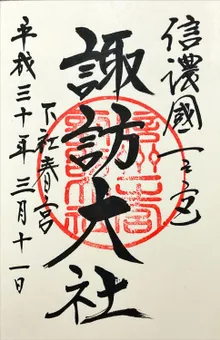 信濃國一之宮
諏訪大社
下社春宮
平成三十年三月十一日